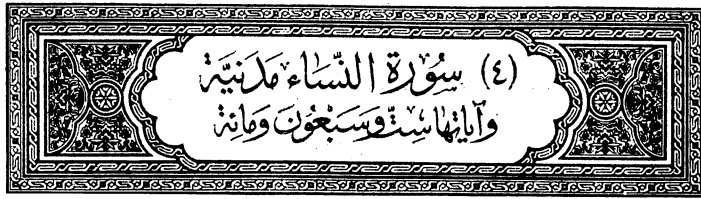 (٤) سُورَة النِّسَاء مَدَنِيَّة
وَآيَاتهَا سِتّ وَسَبْعُونَ وَمِائَة